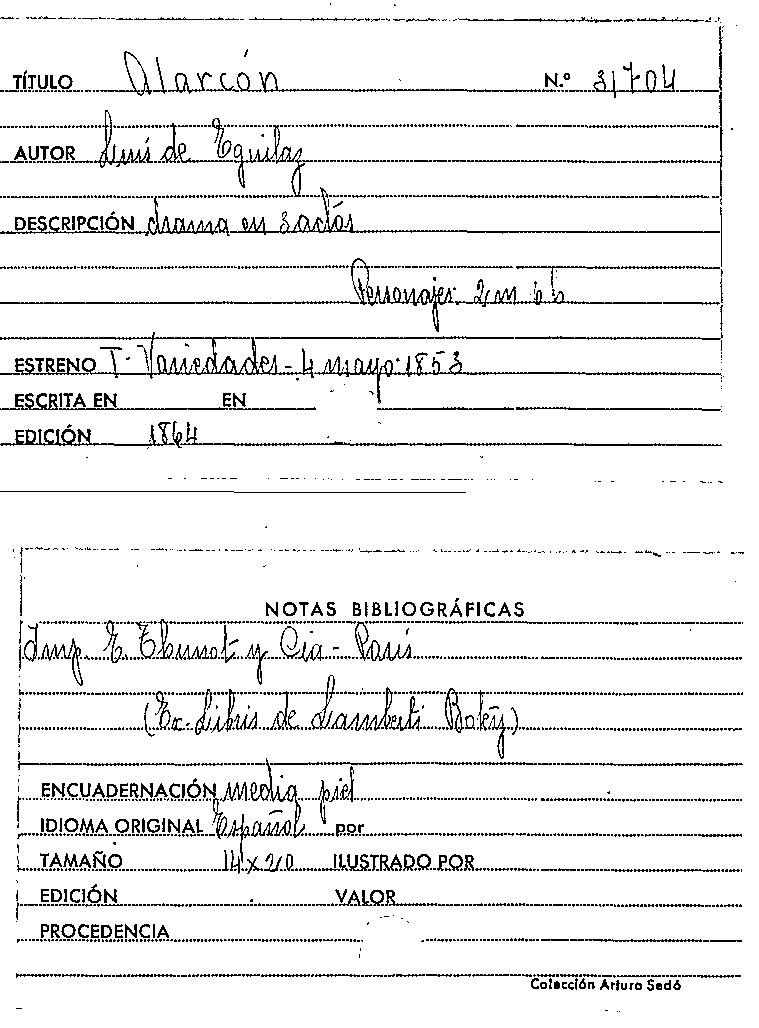 TÍTULO Alarcón N.º 31704
AUTOR Luis de Eguilaz
DESCRIPCIÓN drama en 3 actos
Personajes: 2 m 6 h
ESTRENO T. Variedades - 4 mayo 1853
ESCRITA EN EN
EDICIÓN 1864
NOTAS BIBLIOGRÁFICAS
Imp. E. Thunot y Cia - Paris
(Ex-Libris de Lamberti Botey)
ENCUADERNACIÓN media piel
IDIOMA ORIGINAL Español por
TAMAÑO 14 x 20 ILUSTRADO POR
EDICIÓN VALOR
PROCEDENCIA
Colección Arturo Sedó